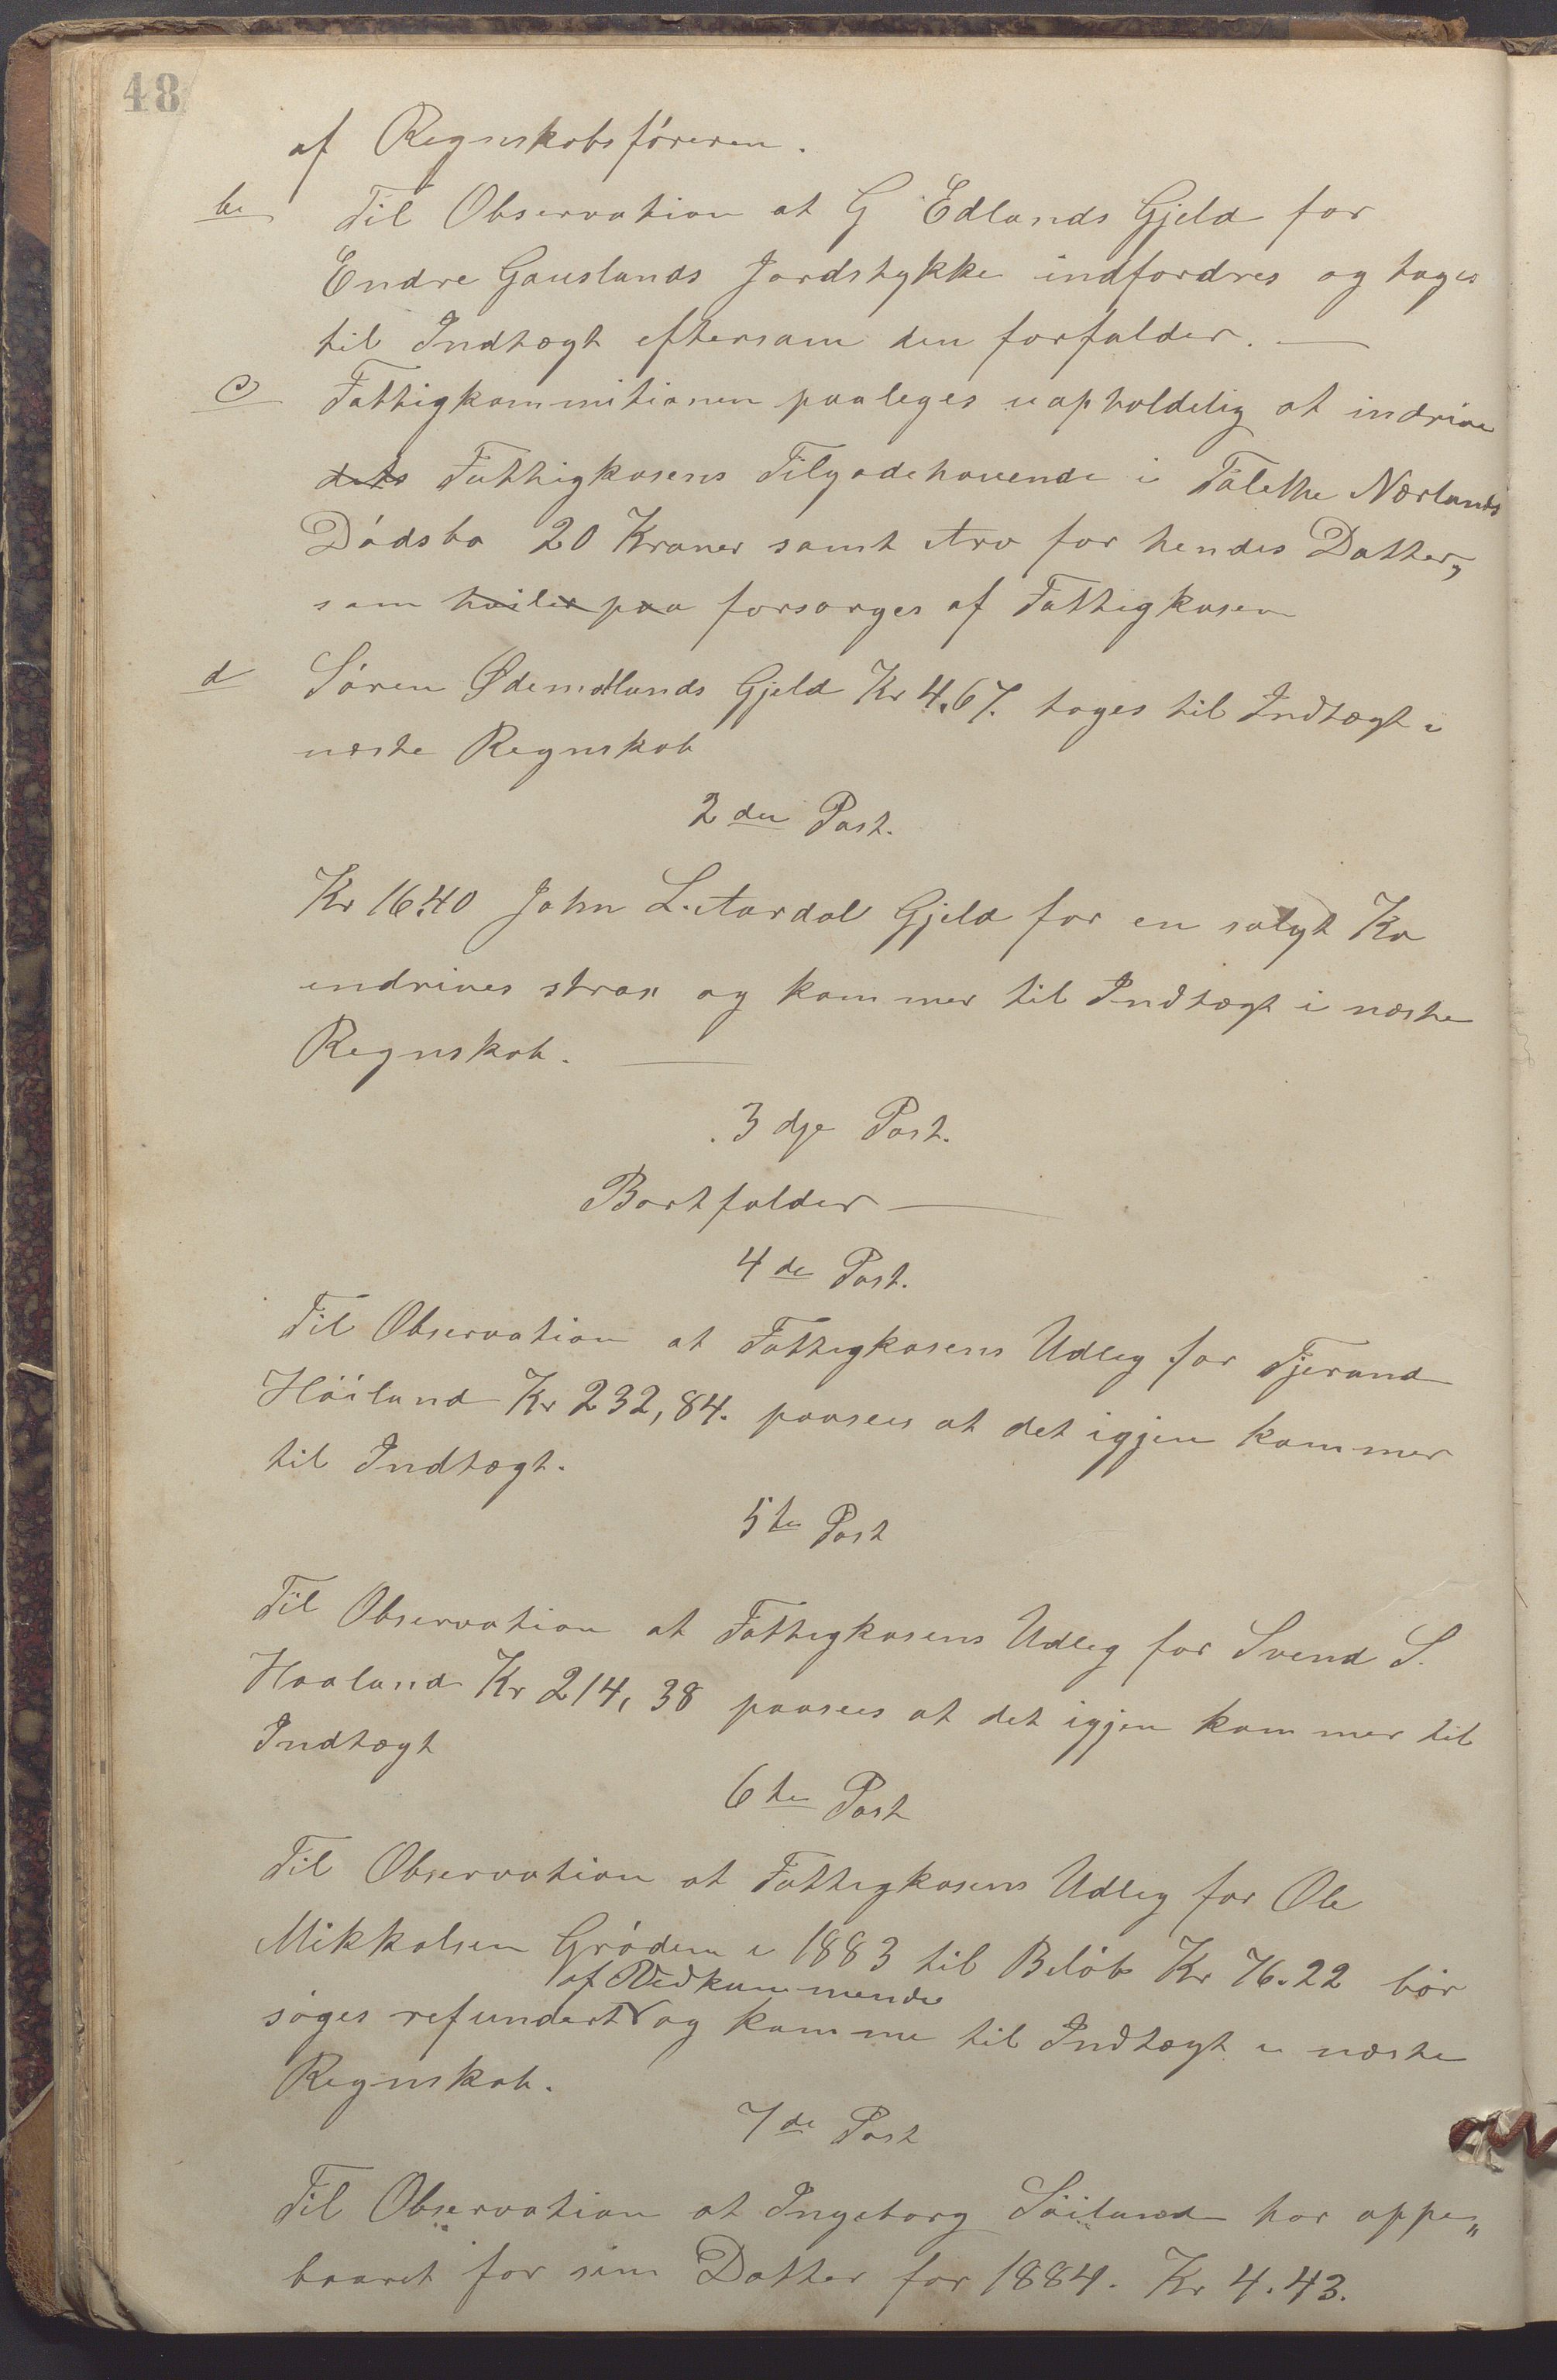 48
af Regnskobsföreren.
b. Til Observation at G Edlands Gjeld for
Endre Gauslands Jordstykke indfordres og tages
til Indtægt eftersom den forfalder. —
c Fattigkommitionen paaleges uopholdelig at indrive
dets Fattigkasens Tilgodehavende i Tålethe Nærlands
Dödsbo 20 Kroner samt Arv for hendes Datter,
som hviler paa forsørges af Fattigkasen
d Sören Ødemotlands Gjeld Kr 4,67. tages til Indtægt i
næste Regnskab
2den Post.
Kr 16.40 John L. Aardal Gjeld for en solgt Ko
indrives strax og kommer til Indtægt i næste
Regnskab. —
3dje Post.
Bortfalder —
4de Post.
Til Observation at Fattigkasens Udleg for Tjerand
Höiland Kr 232,84. paasees at det igjen kommer
til Indtægt.
5te Post
Til Observation at Fattigkasens Udleg for Svend S.
Haaland Kr 214,38 paasees at det igjen kommer til
Indtægt
6te Post
Til Observation at Fattigkasens Udleg for Ole
Mikkalsen Grödem i 1883 til Belöb Kr 76.22 bör
af Vedkommende
söges refundert og komme til Indtægt i næste
Regnskab.
7de Post
Til Observation at Ingeborg Söiland har oppe„
baaret for sin Datter for 1884. Kr 4.43.